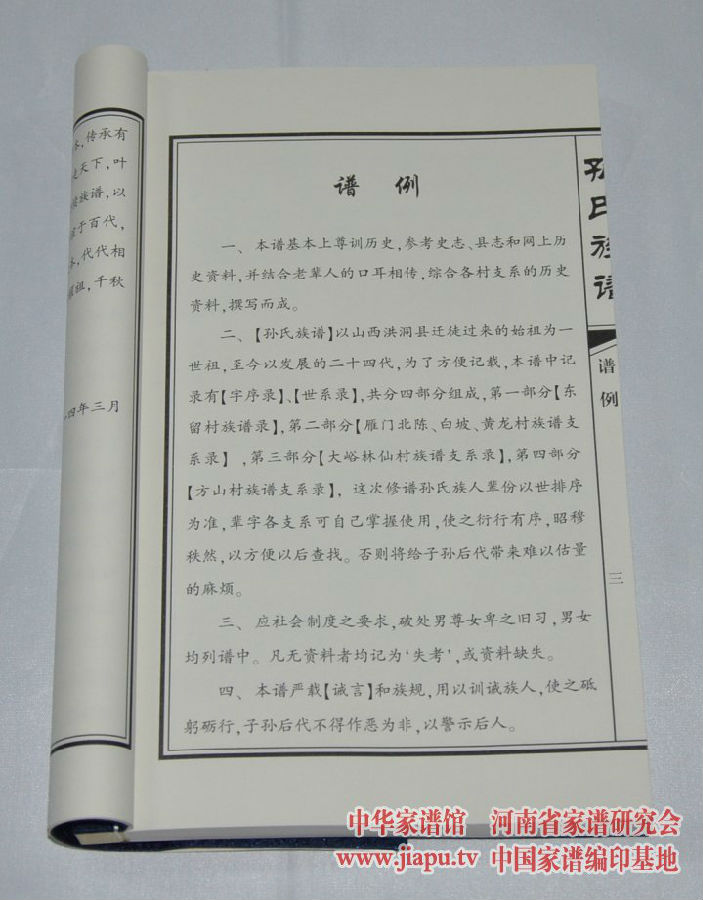 传承有
天下，叶
族谱，以
于百代，
代代相
祖，千秋
四年三月
谱 例
一、本谱基本上尊训历史，参考史志、县志和网上历
史资料，并结合老辈人的口耳相传，综合各村支系的历史
资料，撰写而成。
二、【孙氏族谱】以山西洪洞县迁徙过来的始祖为一
世祖，至今以发展的二十四代，为了方便记载，本谱中记
录有【字序录】、【世系录】，共分四部分组成，第一部分【东
留村族谱录】，第二部分【雁门北陈、白坡、黄龙村族谱支
系录】，第三部分【大峪林仙村族谱支系录】，第四部分
【方山村族谱支系录】，这次修谱孙氏族人辈份以世排序
为准，辈字各支系可自己掌握使用，使之衍行有序，昭穆
秩然，以方便以后查找。否则将给子孙后代带来难以估量
的麻烦。
三、应社会制度之要求，破处男尊女卑之旧习，男女
均列谱中。凡无资料者均记为‘失考’，或资料缺失。
四、本谱严载【诫言】和族规，用以训诫族人，使之砥
躬砺行，子孙后代不得作恶为非，以警示后人。
孙氏族谱
谱例
三
中华家谱馆 河南省家谱研究会
www.jiapu.tv 中国家谱编印基地